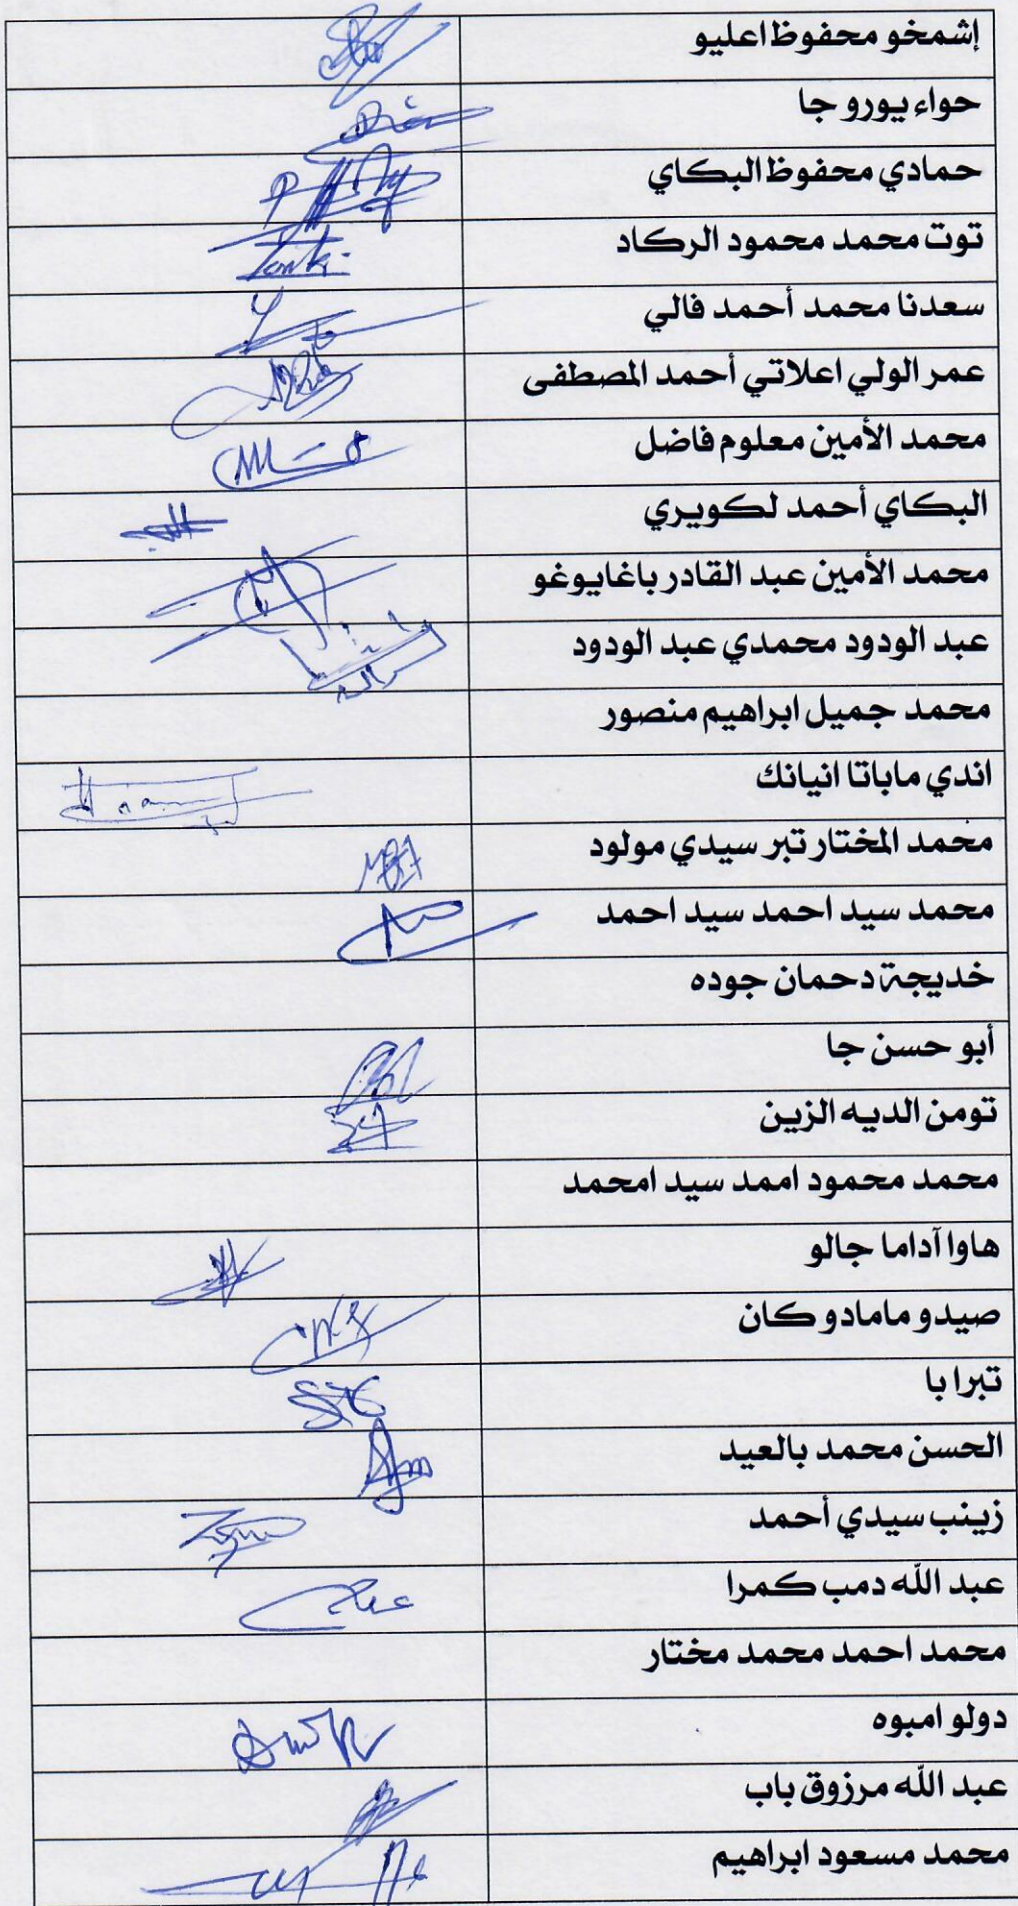 إشمخو محفوظ اعليو
حواء يورو جا
حمادي محفوظ البكاي
توت محمد محمود الركاد
سعدنا محمد أحمد فالي
عمر الولي اعلاتي أحمد المصطفى
محمد الأمين معلوم فاضل
البكاي أحمد لكويري
محمد الأمين عبد القادر باغايوغو
عبد الودود محمدي عبد الودود
محمد جميل ابراهيم منصور
اندي ماباتا انيانك
محمد المختار تبر سيدي مولود
محمد سيد احمد سيد احمد
خديجة دحمان جوده
أبو حسن جا
تومن الديه الزين
محمد محمود اممد سيد امحمد
هاوا آداما جالو
صيدو مامادو كان
تبرا با
الحسن محمد بالعيد
زينب سيدي أحمد
عبد الله دمب كمرا
محمد احمد محمد مختار
دولو امبوه
عبد الله مرزوق باب
محمد مسعود ابراهيم